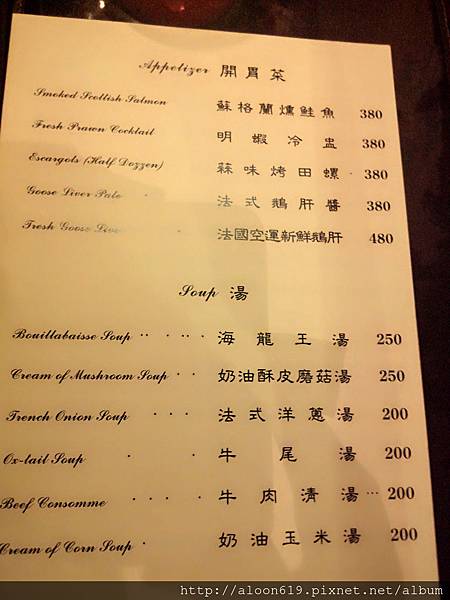 Appetizer 開胃菜
Smoked Scottish Salmon 蘇格蘭燻鮭魚 380
Fresh Prawn Cocktail 明蝦冷盅 380
Escargots (Half Dozzen) 蒜味烤田螺 380
Goose Liver Pate 法式鵝肝醬 380
Fresh Goose Liver 法國空運新鮮鵝肝 480
Soup 湯
Bouillabaisse Soup 海龍王湯 250
Cream of Mushroom Soup 奶油酥皮蘑菇湯 250
French Onion Soup 法式洋蔥湯 200
Ox-tail Soup 牛尾湯 200
Beef Consomme 牛肉清湯 200
Cream of Corn Soup 奶油玉米湯 200
http://aloon619.pixnet.net/album